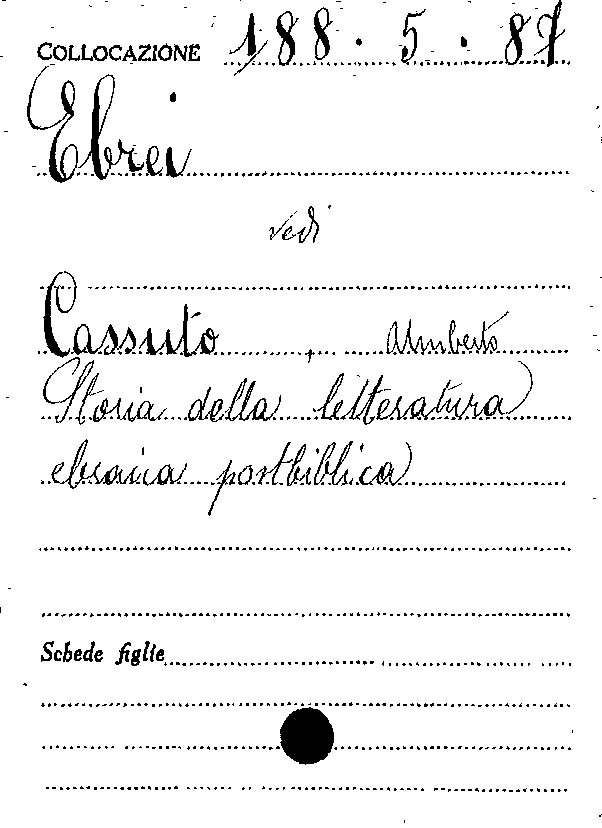 COLLOCAZIONE 188.5.87
Ebrei
vedi
Cassuto, Umberto
Storia della letteratura
ebraica postbiblica
Schede figlie